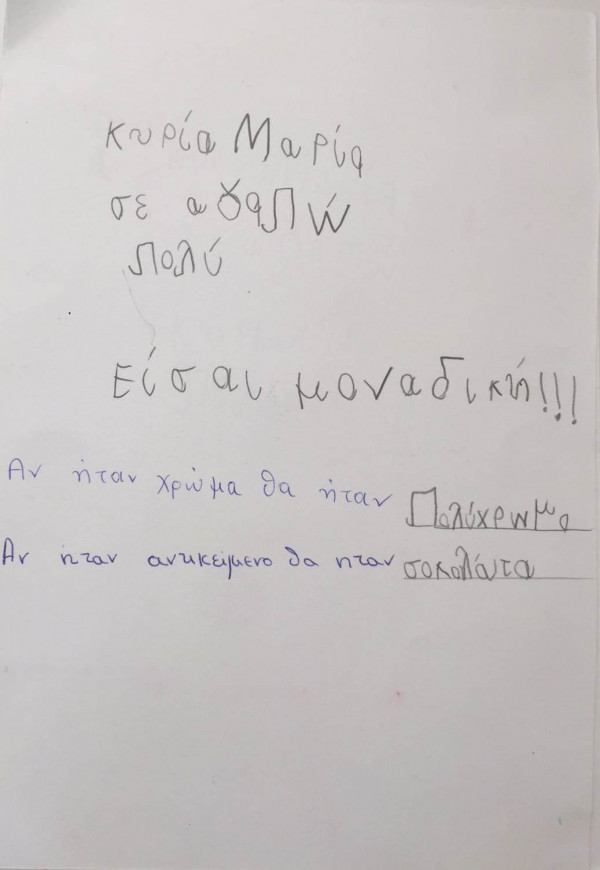 κυρία Μαρία
σε αγαπώ
πολύ
Είσαι μοναδική!!!
Αν ήταν χρώμα θα ήταν Πολύχρωμο
Αν ήταν αντικείμενο θα ηταν σοκολάτα